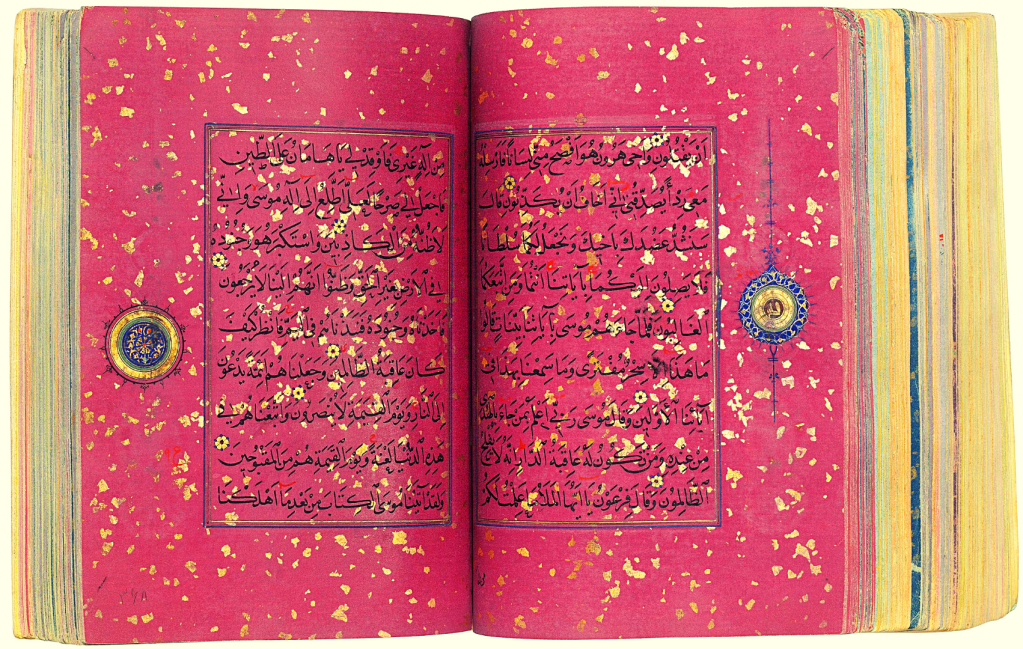 أَنْ يَقْتُلُونِ وَأَخِي هَرُونُ هُوَ أَفْصَحُ مِنِّي لِسَانًا فَأَرْسِلْهُ
مَعِيَ رِدْءًا يُصَدِّقُنِي إِنِّي أَخَافُ أَنْ يُكَذِّبُونِ قَالَ
سَنَشُدُّ عَضُدَكَ بِأَخِيكَ وَنَجْعَلُ لَكُمَا سُلْطَانًا
فَلَا يَصِلُونَ إِلَيْكُمَا بِآيَاتِنَا أَنْتُمَا وَمَنِ اتَّبَعَكُمَا
الْغَالِبُونَ فَلَمَّا جَاءَهُمْ مُوسَى بِآيَاتِنَا بَيِّنَاتٍ قَالُوا
مَا هَذَا إِلَّا سِحْرٌ مُفْتَرًى وَمَا سَمِعْنَا بِهَذَا فِي
آبَائِنَا الْأَوَّلِينَ وَقَالَ مُوسَى رَبِّي أَعْلَمُ بِمَنْ جَاءَ بِالْهُدَى
مِنْ عِنْدِهِ وَمَنْ تَكُونُ لَهُ عَاقِبَةُ الدَّارِ إِنَّهُ لَا يُفْلِحُ
الظَّالِمُونَ وَقَالَ فِرْعَوْنُ يَا أَيُّهَا الْمَلَأُ مَا عَلِمْتُ لَكُمْ
مِنْ إِلَهٍ غَيْرِي فَأَوْقِدْ لِي يَا هَامَانُ عَلَى الطِّينِ
فَاجْعَلْ لِي صَرْحًا لَعَلِّي أَطَّلِعُ إِلَى إِلَهِ مُوسَى وَإِنِّي
لَأَظُنُّهُ مِنَ الْكَاذِبِينَ وَاسْتَكْبَرَ هُوَ وَجُنُودُهُ
فِي الْأَرْضِ بِغَيْرِ الْحَقِّ وَظَنُّوا أَنَّهُمْ إِلَيْنَا لَا يُرْجَعُونَ
فَأَخَذْنَاهُ وَجُنُودَهُ فَنَبَذْنَاهُمْ فِي الْيَمِّ فَانْظُرْ كَيْفَ
كَانَ عَاقِبَةُ الظَّالِمِينَ وَجَعَلْنَاهُمْ أَئِمَّةً يَدْعُونَ
إِلَى النَّارِ وَيَوْمَ الْقِيَمَةِ لَا يُنْصَرُونَ وَأَتْبَعْنَاهُمْ فِي
هَذِهِ الدُّنْيَا لَعْنَةً وَيَوْمَ الْقِيَمَةِ هُمْ مِنَ الْمَقْبُوحِينَ
وَلَقَدْ آتَيْنَا مُوسَى الْكِتَابَ مِنْ بَعْدِ مَا أَهْلَكْنَا